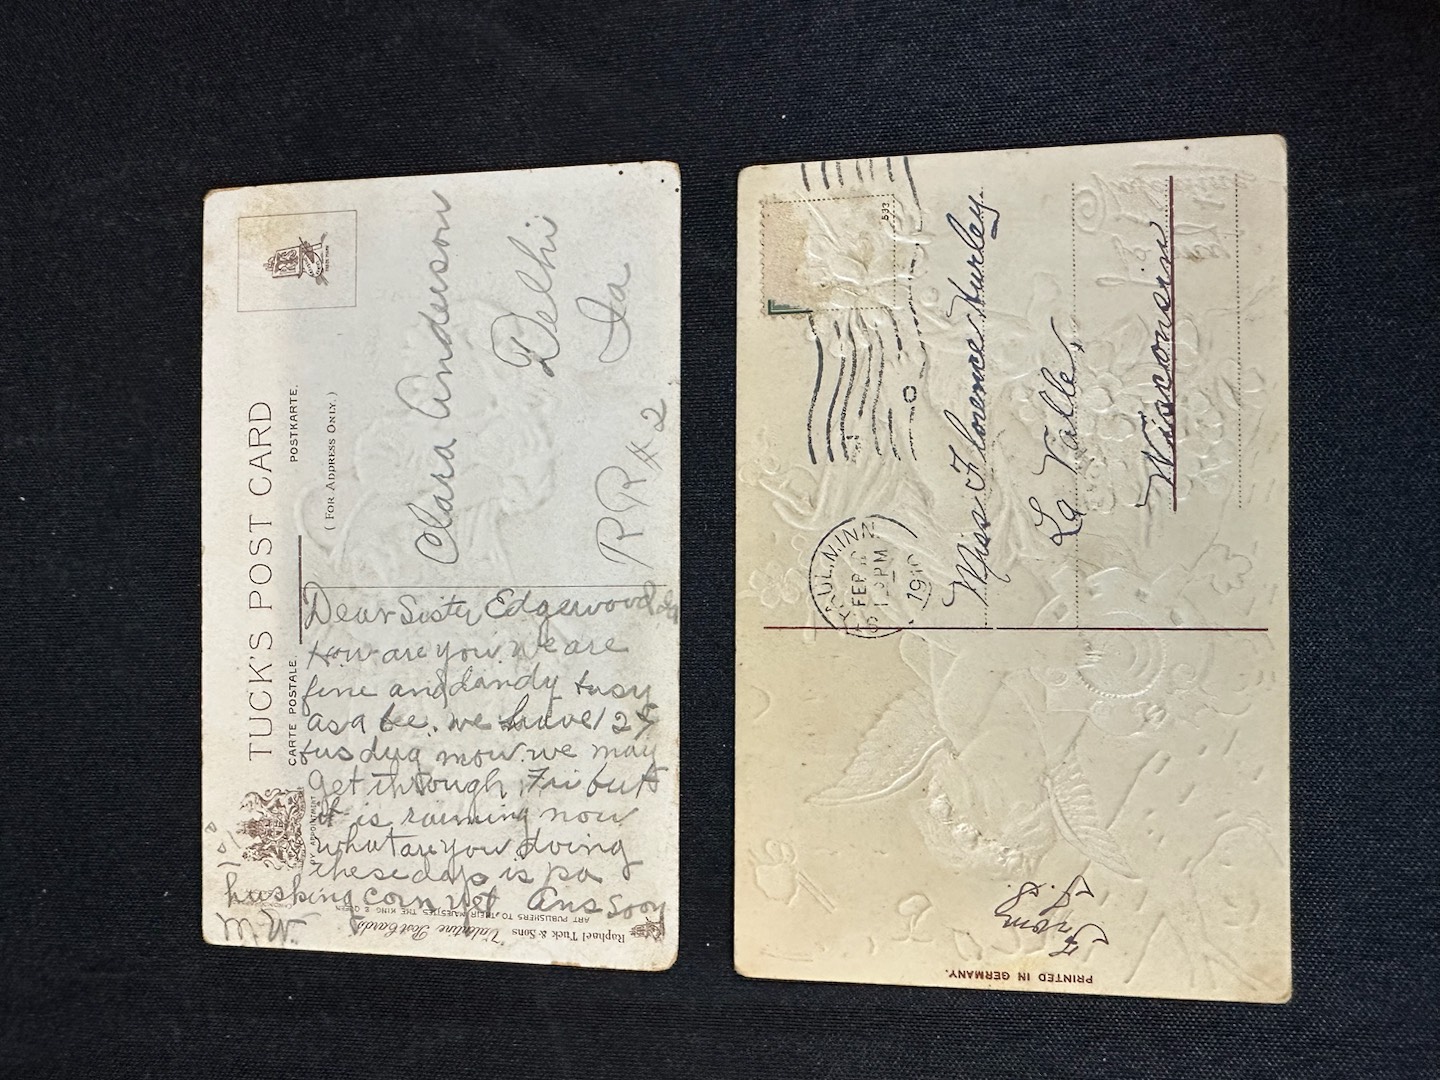 TUCK'S POST CARD
CARTE POSTALE.
POSTKARTE.
( FOR ADDRESS ONLY.)
BY APPOINTMENT
Dear Sister Edgewood Ia
How are you. We are
fine and dandy busy
as a bee. we have 25
dug now. we may
get through Fri but
it is raining now
what are you doing
these days is pa
husking corn yet Ans Soon
M.W.
Clara Anderson
Delhi
Ia
RR # 2
Raphael Tuck & Sons "Valentine" Post Cards
ART PUBLISHERS TO THEIR MAJESTIES THE KING & QUEEN
533
ST. PAUL, MINN.
FEB
12 PM
1910
Miss Florence Hurley.
La Valle,
Wisconsin
From
J. S.
PRINTED IN GERMANY.